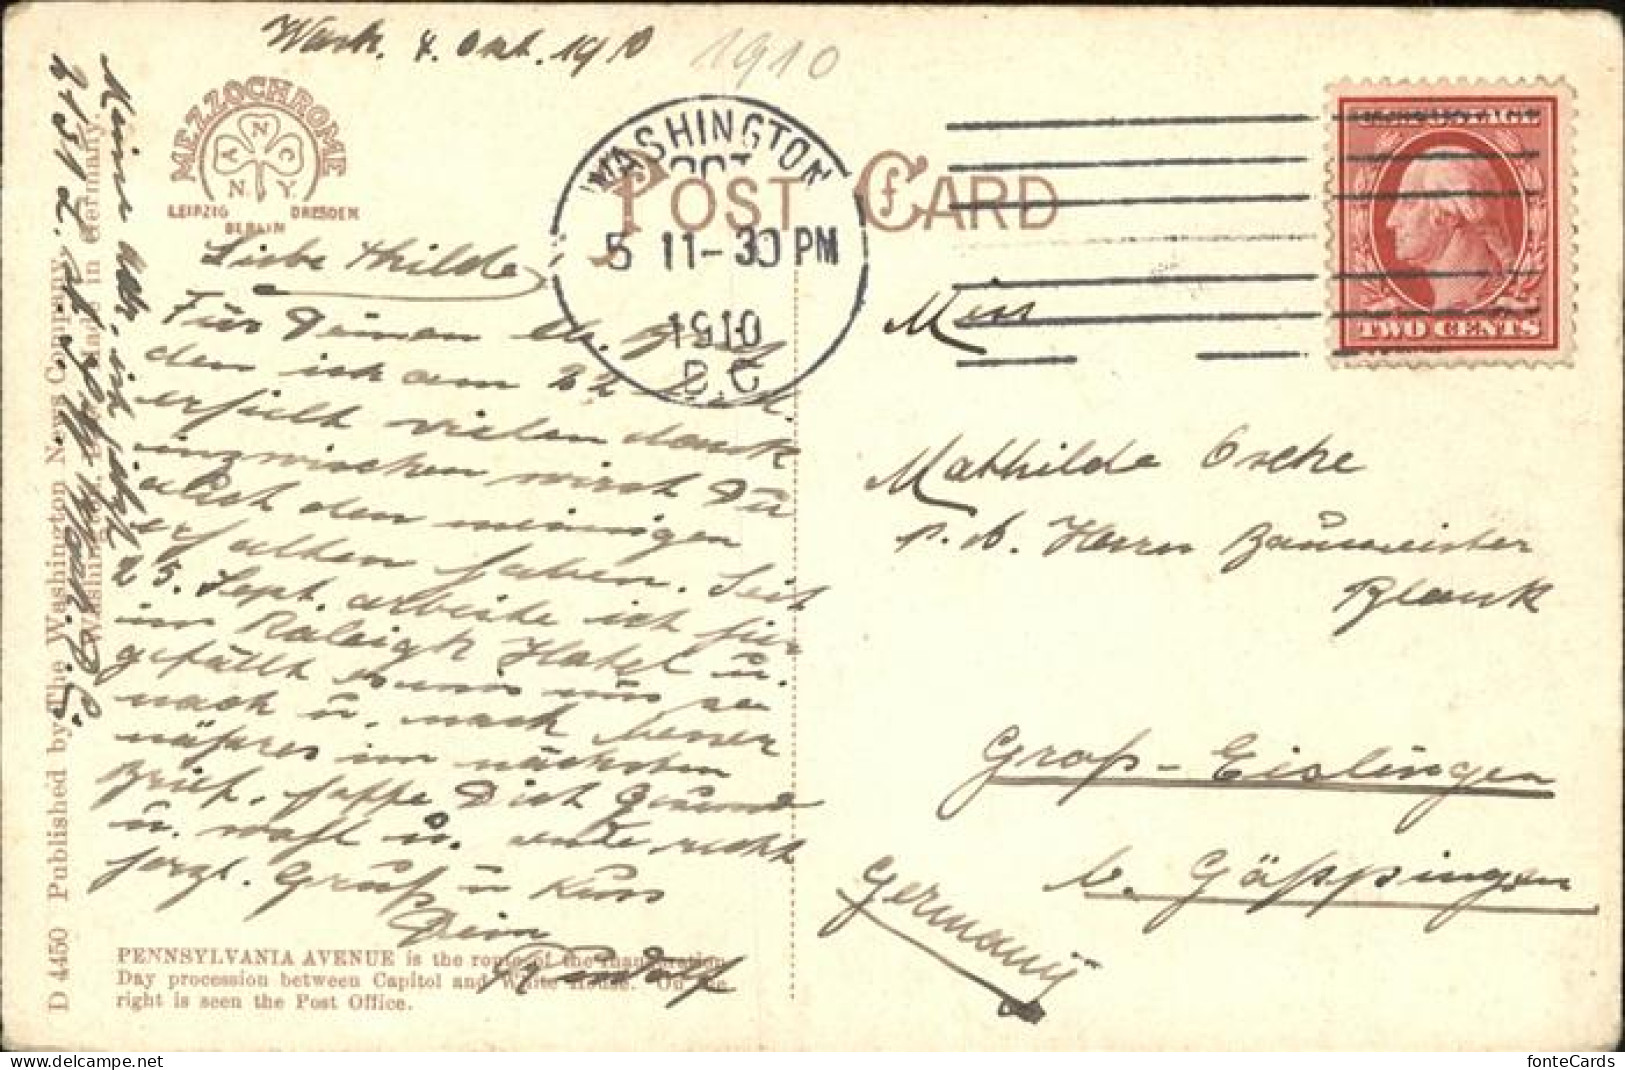 Wash. 4. Okt. 1910
1910
MEZZOCHROME
A N C
N. Y.
LEIPZIG DRESDEN
BERLIN
WASHINGTON
OCT
5 11-30 PM
1910
D.C.
POST CARD
TWO CENTS
Liebe Thilde
Für Deinen lb. Brief
den ich am 22.
erhielt vielen dank
inzwischen wirst Du
auch den meinigen
erhalten haben. Seit
25. Sept. arbeite ich hier
im Raleigh Hotel u.
gefällt es mir
nach u. nach
näheres im nächsten
Brief. hoffe Dich Gesund
u. wohl u. ende recht
herzl. Gruß u Kuss
Dein
Rudolf
Meine Adr. ist jetzt
Miss
Mathilde
p. A. Herrn Baumeister
Blank
Groß-Eislingen
b. Göppingen
Germany
PENNSYLVANIA AVENUE is the route of the Inauguration
Day procession between Capitol and White House. On the
right is seen the Post Office.
D 4450 Published by The Washington News Company,
Washington Made in Germany.
fonteCards